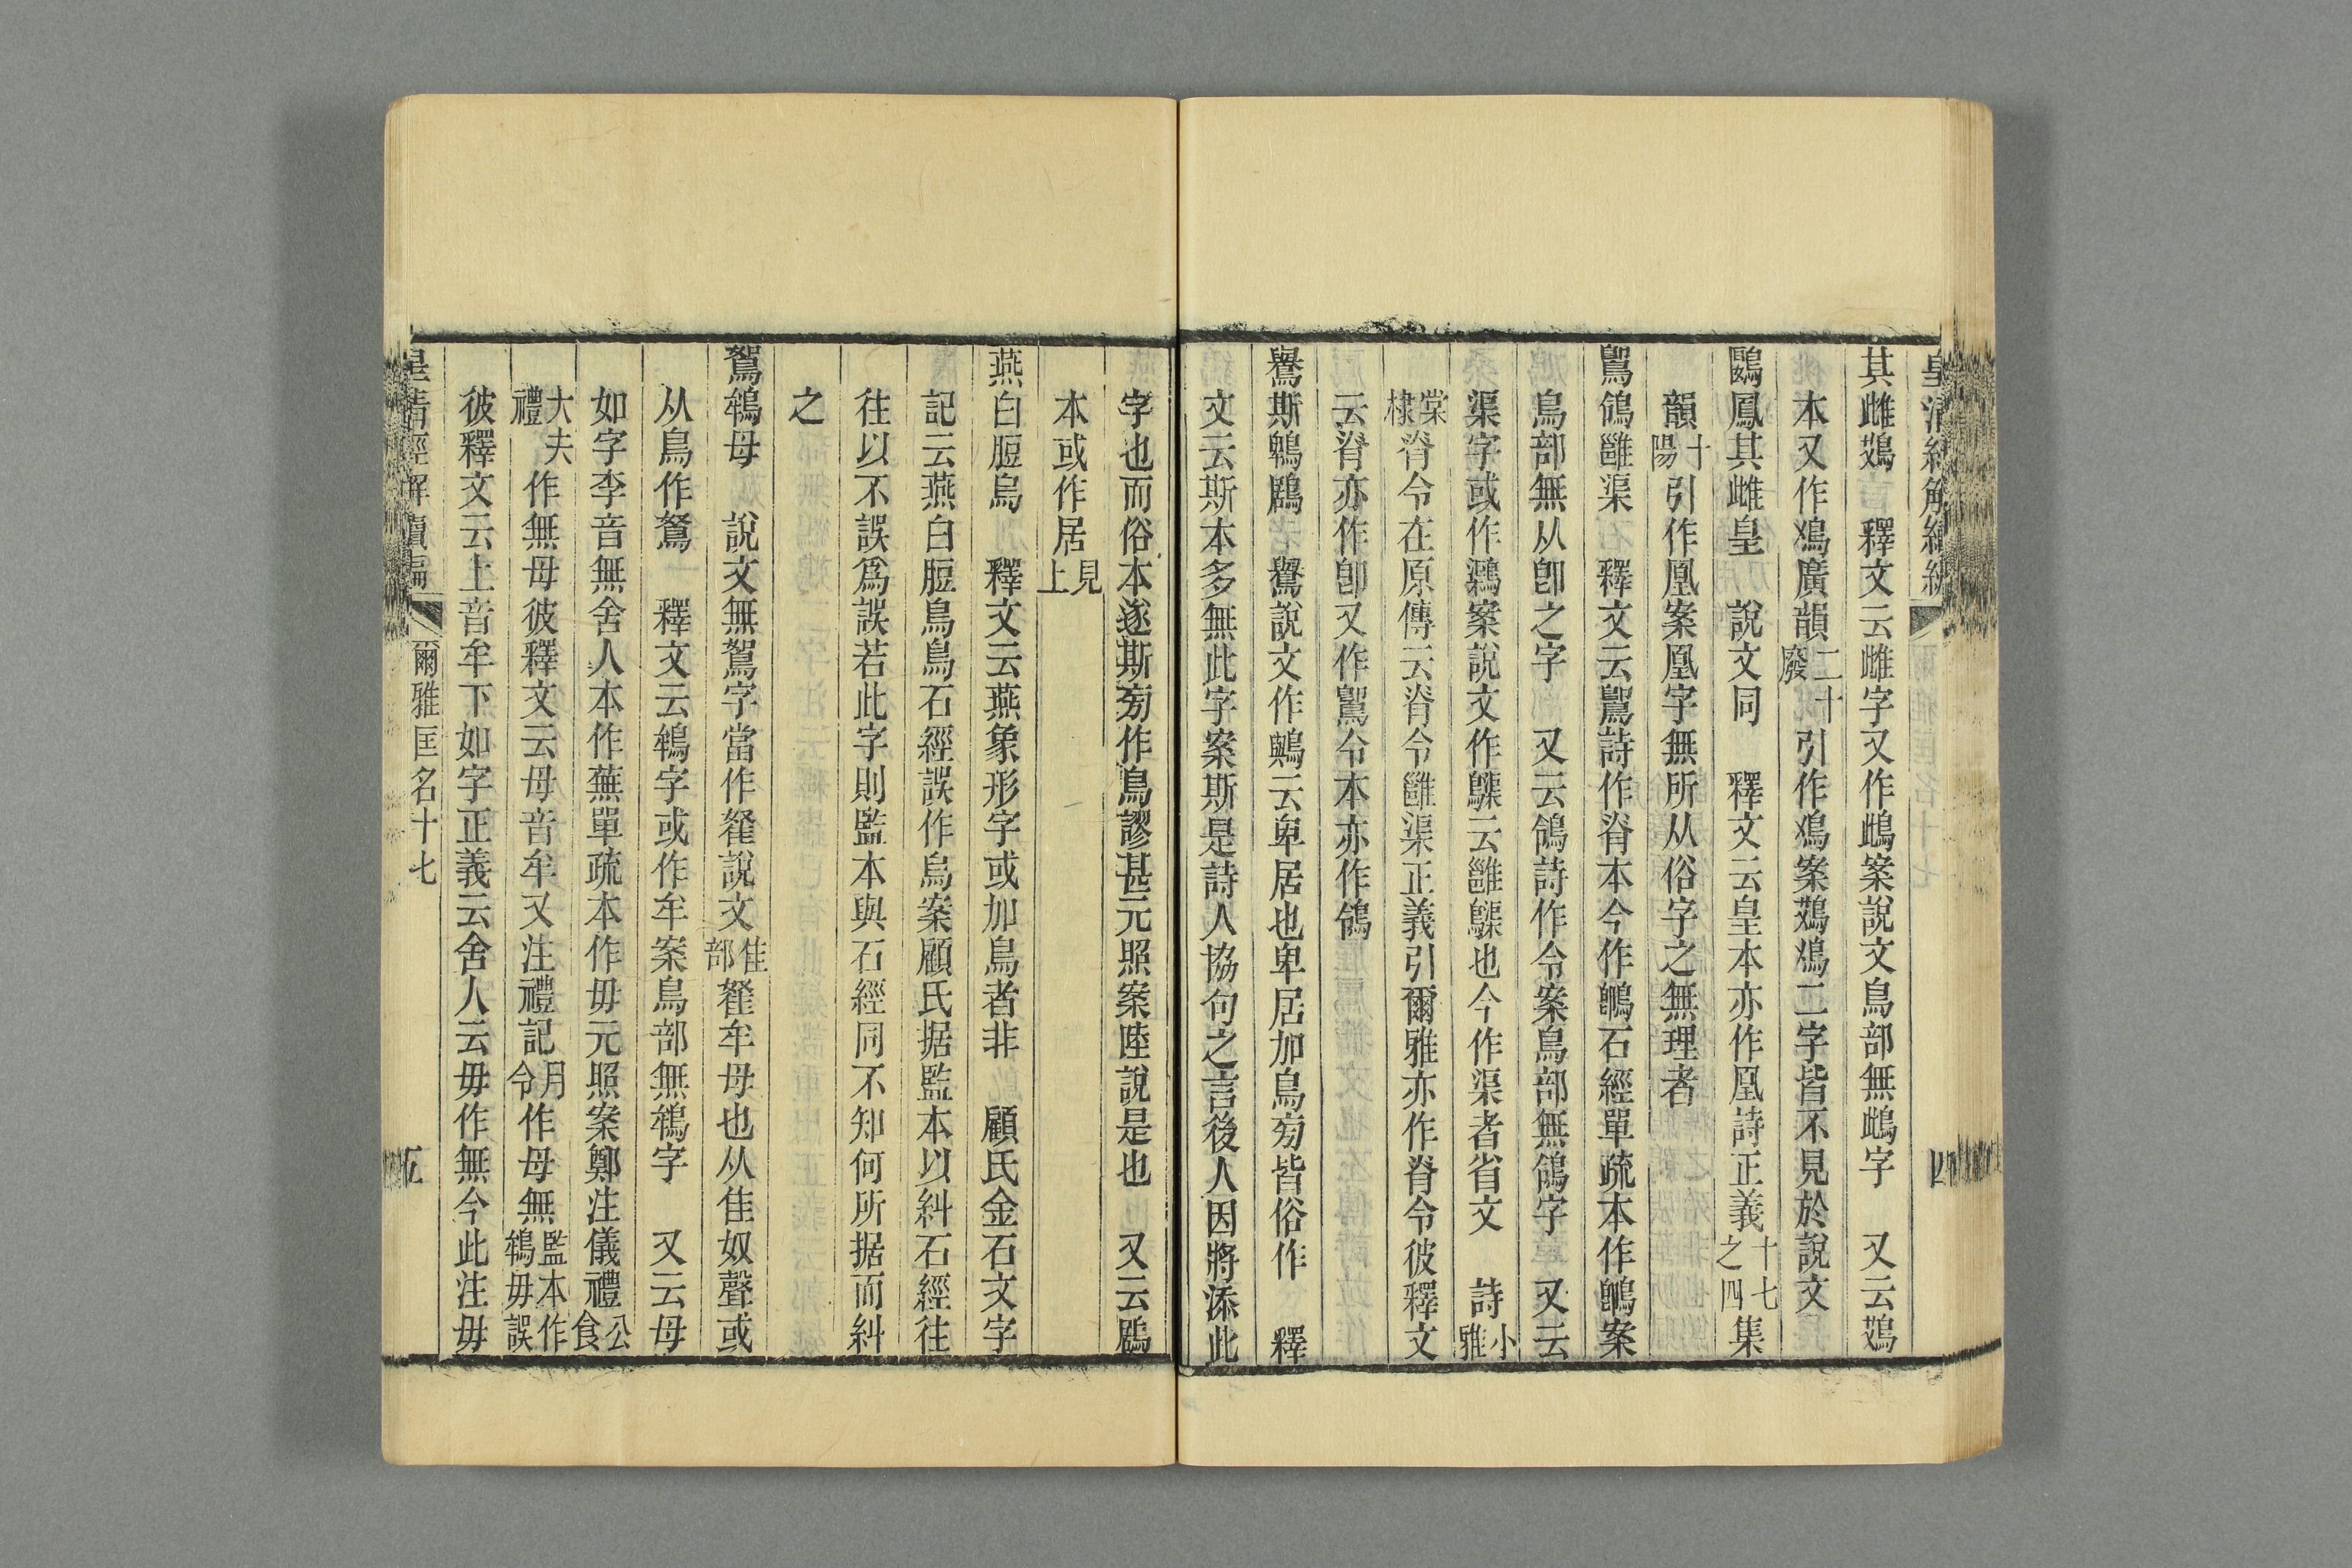 皇清經解續編
四
其雌鶂　釋文云雌字又作鴜案說文鳥部無鴜字　又云鶂
本又作鳭廣韻二十廢引作鳭案鶂鳭二字皆不見於說文
鶠鳳其雌皇　說文同　釋文云皇本亦作凰詩正義十七之四集
韻十陽引作凰案凰字無所从俗字之無理者
鴽鴒雝渠　釋文云鴽詩作脊本今作鶺石經單疏本作鶺案
鳥部無从卽之字　又云鴒詩作令案鳥部無鴒字　又云
渠字或作鸂案說文作䳶云雝䳶也今作渠者省文　詩小雅
棠棣脊令在原傳云脊令雝渠正義引爾雅亦作脊令彼釋文
云脊亦作卽又作鴽令本亦作鴒
鸒斯鵯鶋　鸒說文作鸒云卑居也卑居加鳥旁皆俗作　釋
文云斯本多無此字案斯是詩人協句之言後人因將添此
字也而俗本遂斯旁作鳥謬甚元照案陸說是也　又云鶋
本或作居見上
燕白脰烏　釋文云燕象形字或加鳥者非　顧氏金石文字
記云燕白脰烏烏石經誤作鳥案顧氏据監本以糾石經往
往以不誤爲誤若此字則監本與石經同不知何所据而糾
之
鴽鴾母　說文無鴽字當作䳺說文隹部䳺牟母也从隹奴聲或
从鳥作鴽　釋文云鴾字或作牟案鳥部無鴾字　又云母
如字李音無舍人本作蕪單疏本作毋元照案鄭注儀禮公食
大夫禮作無母彼釋文云母音牟又注禮記月令作母無監本作鴾毋誤
彼釋文云上音牟下如字正義云舍人云毋作無今此注毋
皇清經解續編
爾雅匡名十七
五